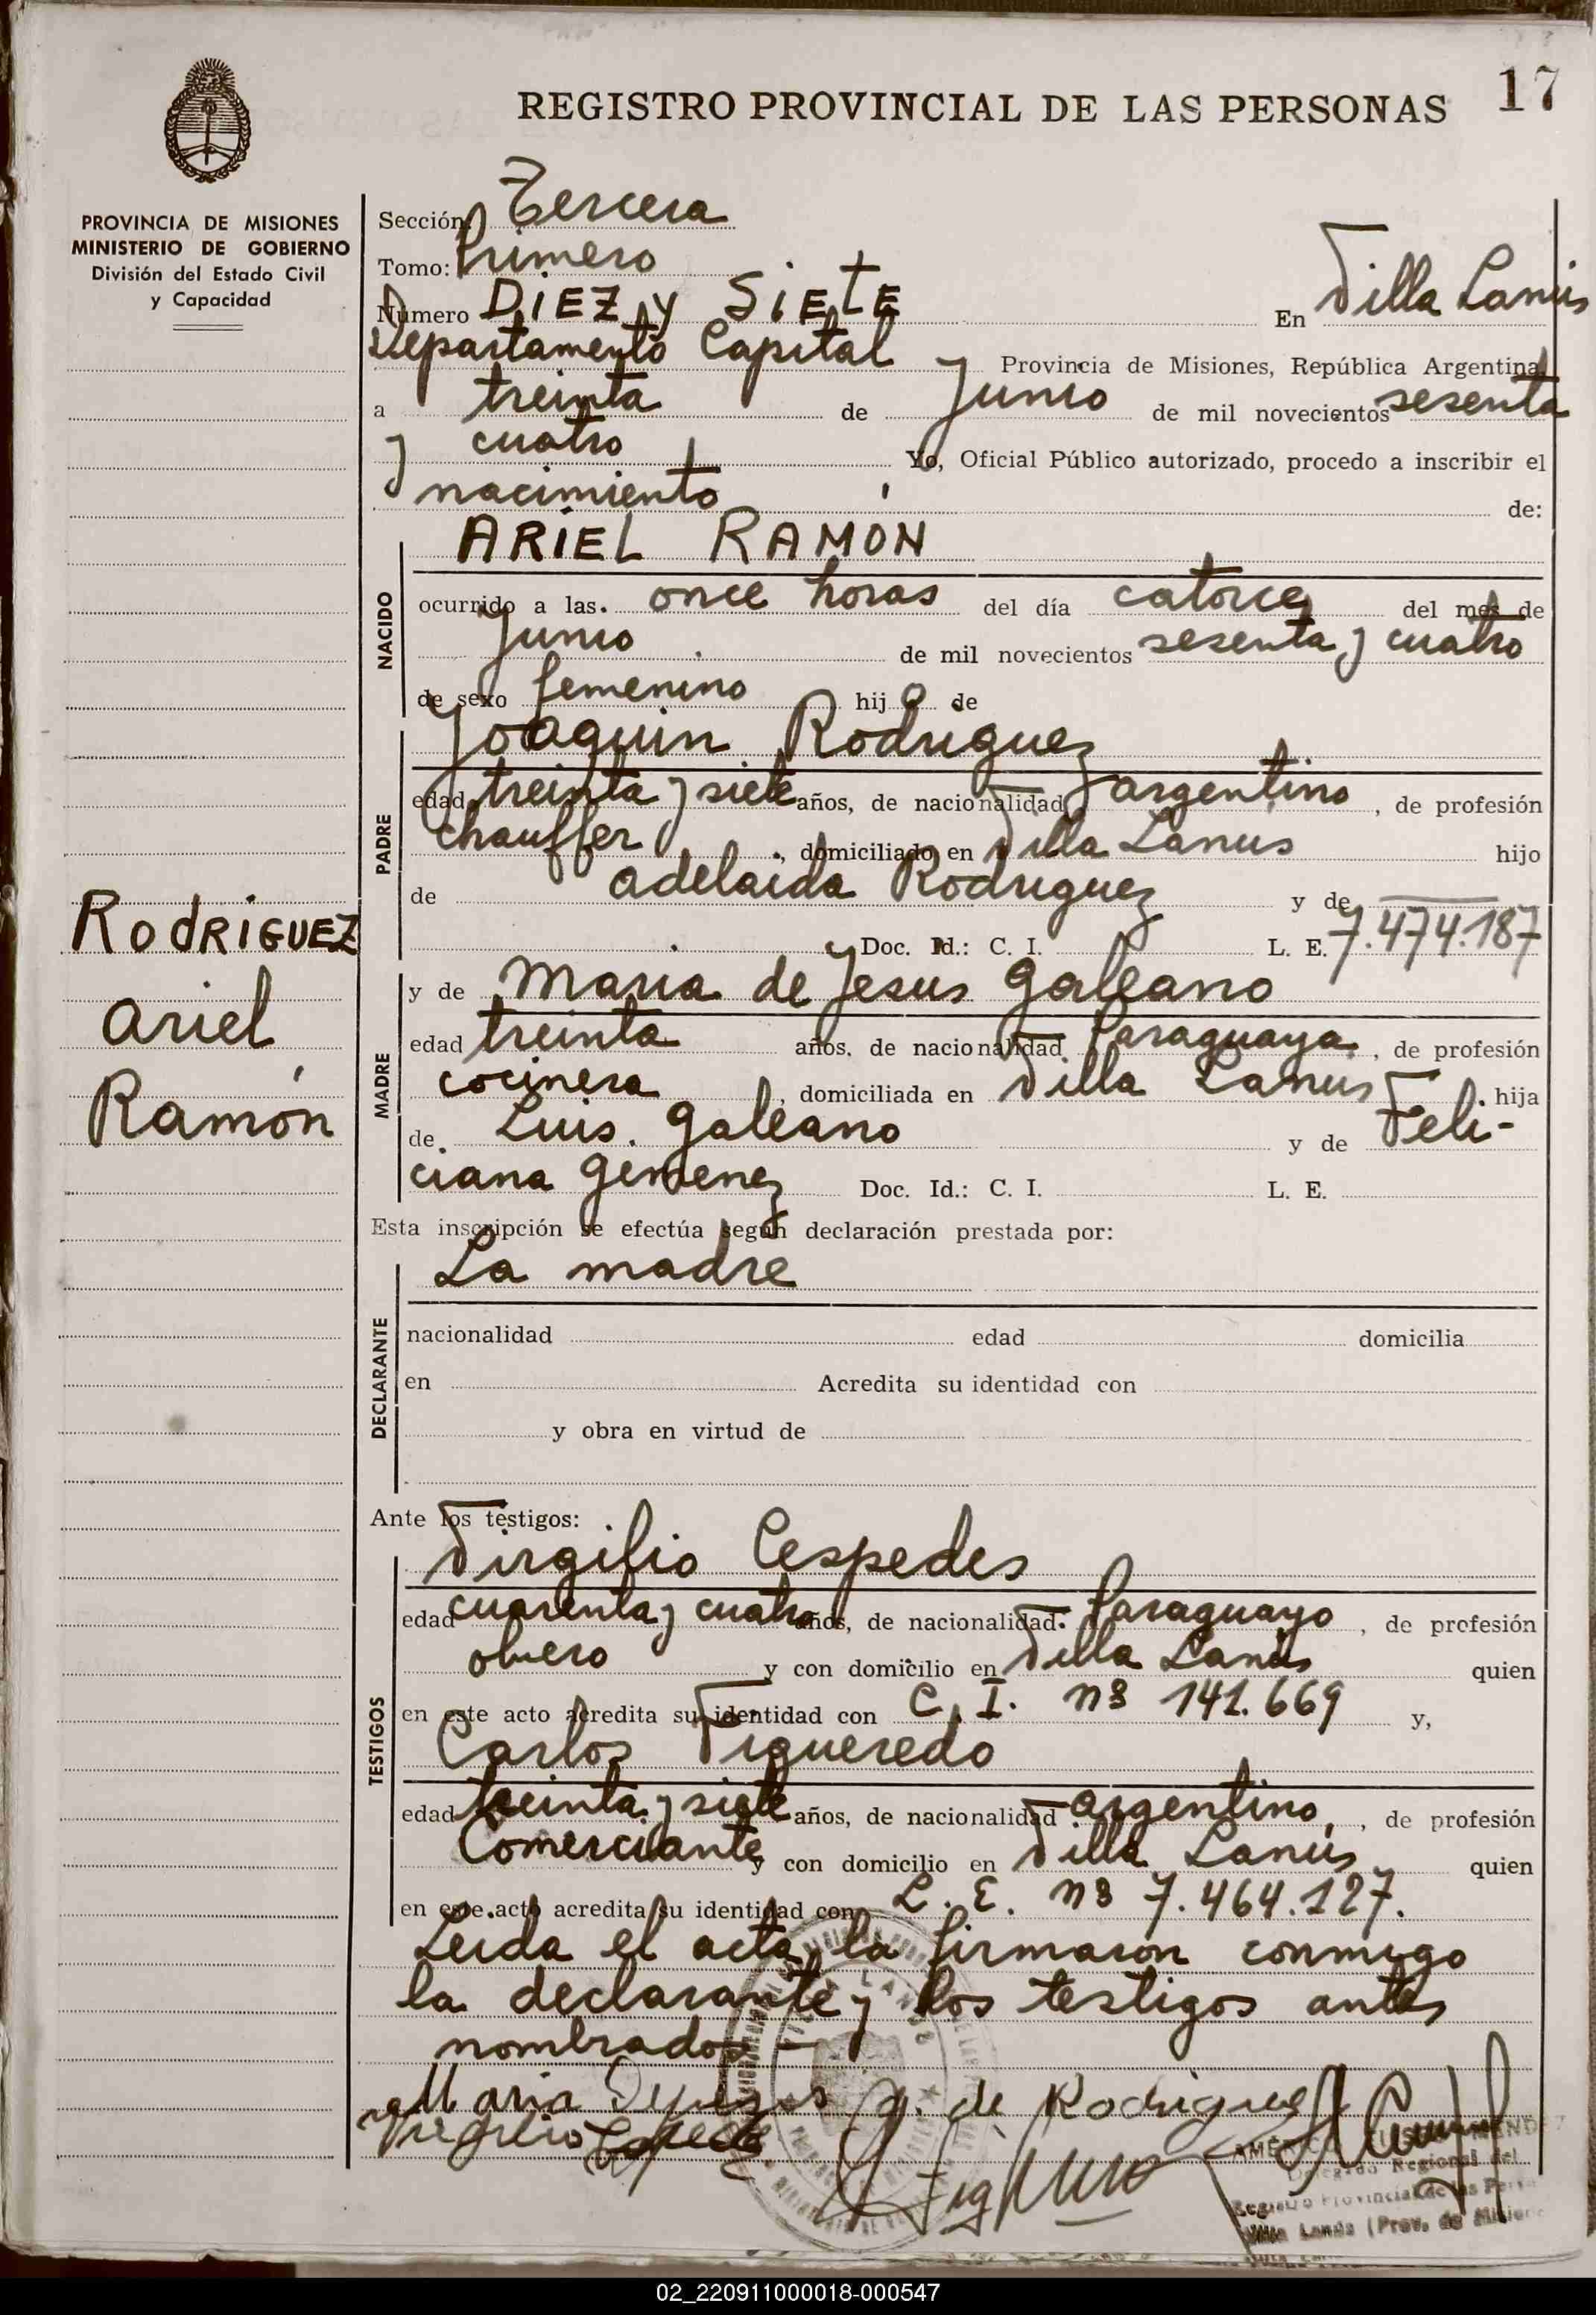 17
REGISTRO PROVINCIAL DE LAS PERSONAS
PROVINCIA DE MISIONES
MINISTERIO DE GOBIERNO
División del Estado Civil
y Capacidad
Sección: Tercera
Tomo: Primero
Número DIEZ y SIETE En Villa Lanús
Departamento Capital Provincia de Misiones, República Argentina,
a treinta de Junio de mil novecientos sesenta
y cuatro Yo, Oficial Público autorizado, procedo a inscribir el
nacimiento de:
NACIDO
ARIEL RAMÓN
ocurrido a las once horas del día catorce del mes de
Junio de mil novecientos sesenta y cuatro
de sexo femenino hij o de
PADRE
Joaquin Rodriguez
edad treinta y siete años, de nacionalidad argentino, de profesión
chauffer, domiciliado en Villa Lanus hijo
de Adelaida Rodriguez y de
Doc. Id.: C. I. L. E. 7.474.187
RODRIGUEZ
Ariel
Ramón
MADRE
y de Maria de Jesus Galeano
edad treinta años, de nacionalidad Paraguaya, de profesión
cocinera, domiciliada en Villa Lanus hija
de Luis Galeano y de Feli-
ciana Gimenez Doc. Id.: C. I. L. E.
Esta inscripción se efectúa según declaración prestada por:
DECLARANTE
La madre
nacionalidad edad domicilia
en Acredita su identidad con
y obra en virtud de
Ante los testigos:
TESTIGOS
Virgilio Cespedes
edad cuarenta y cuatro años, de nacionalidad Paraguayo, de profesión
obrero y con domicilio en Villa Lanús quien
en este acto acredita su identidad con C. I. nº 141.669 y,
Carlos Figueredo
edad treinta y siete años, de nacionalidad argentino, de profesión
Comerciante y con domicilio en Villa Lanús quien
en este acto acredita su identidad con L. E. nº 7.464.127.
Leida el acta, la firmaron conmigo
la declarante y los testigos antes
nombrados
Maria G. de Rodriguez
Virgilio Cespedes
Delegado Regional del
Registro Provincial de las
Villa Lanús (Prov. de Misiones
02_220911000018-000547